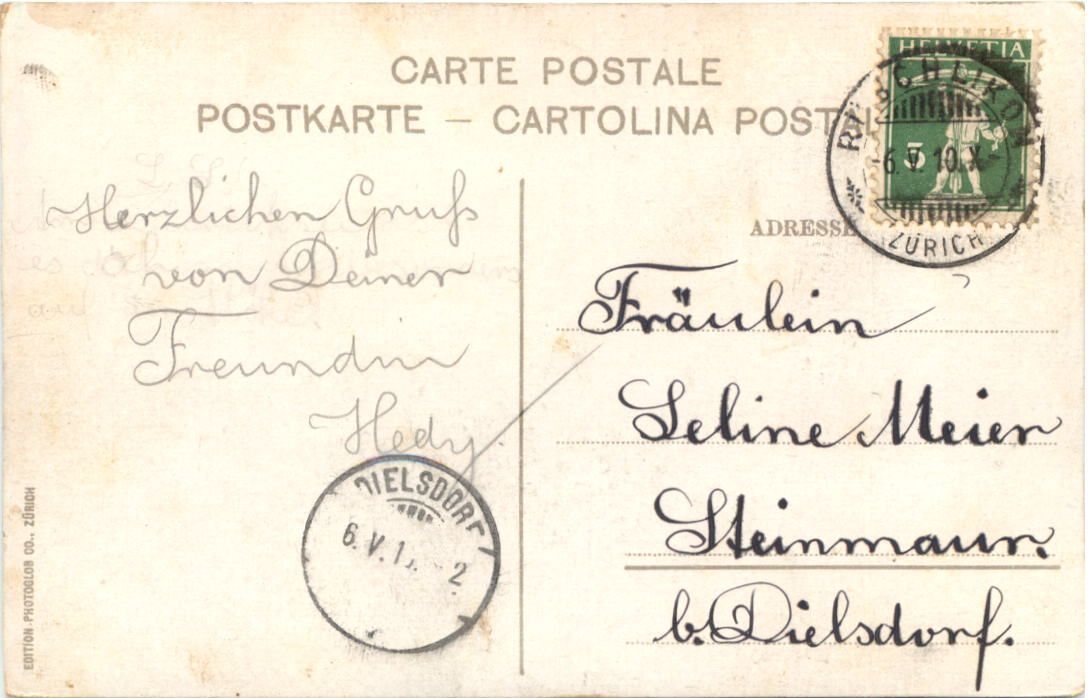 CARTE POSTALE
POSTKARTE – CARTOLINA POST
HELVETIA
5
RÜSCHLIKON
6.V.10.X
ZÜRICH
ADRESSE
Herzlichen Gruß
von Deiner
Freundin
Hedy.
Fräulein
Seline Meier
Steinmaur.
b. Dielsdorf.
DIELSDORF
6.V.1 2
EDITION-PHOTOGLOB CO., ZÜRICH